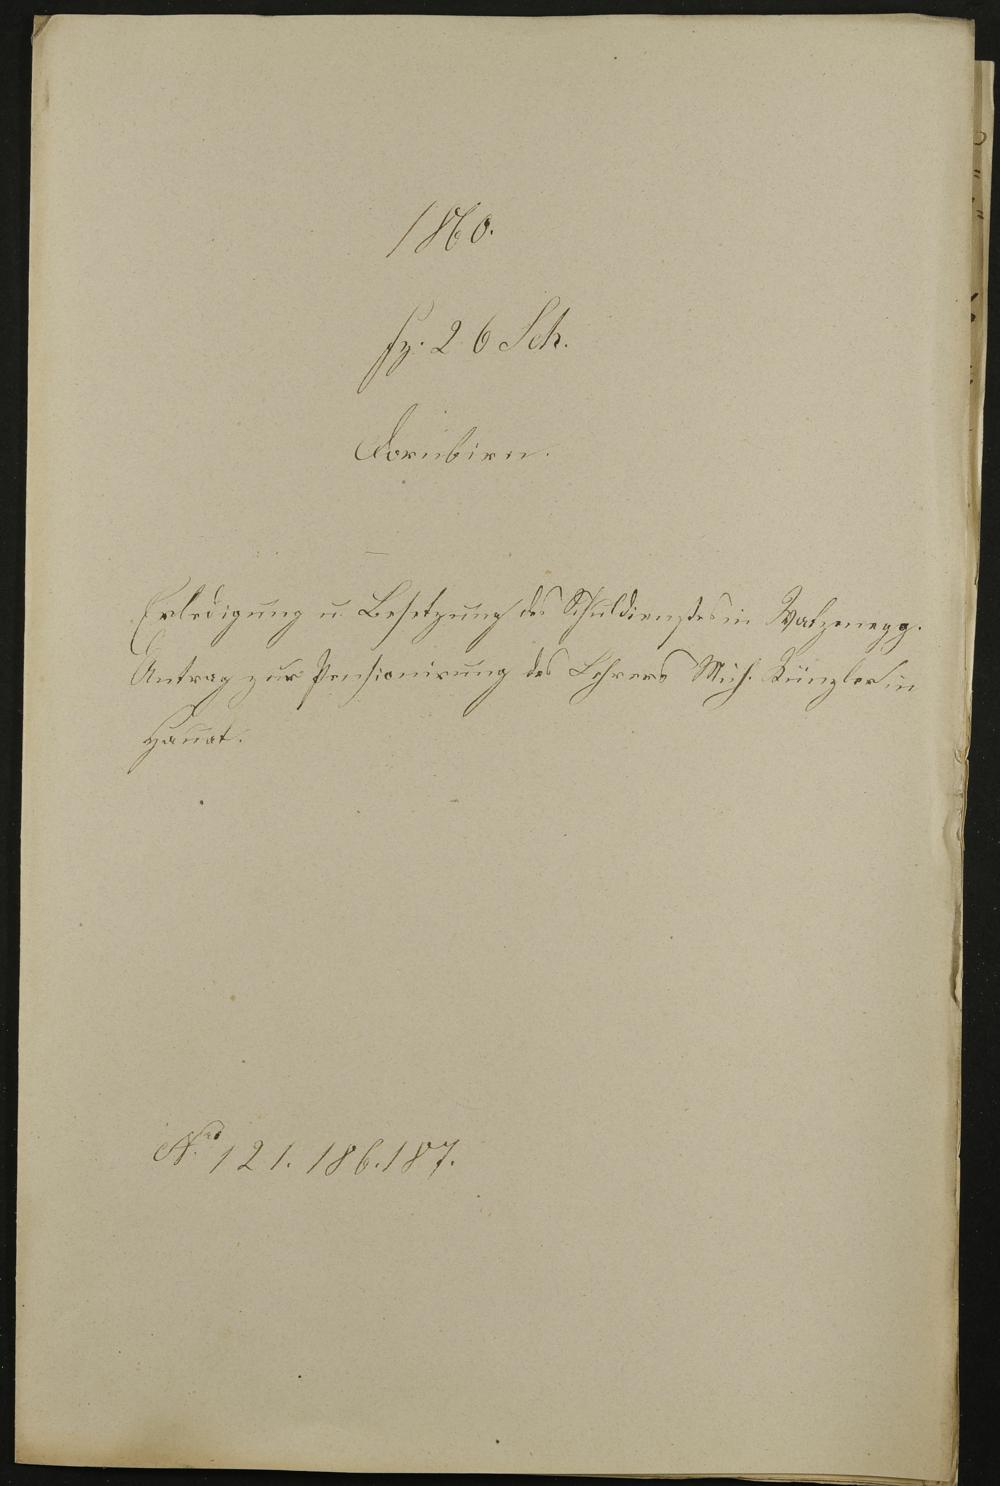 1860.
fz. 26 Sch.
Dornbirn.
Erledigung u Besetzung des Schuldienstes in Watzenegg.
Antrag zur Pensionirung des Lehrers Mich. Künzler in
Hauat.
No. 121. 186. 187.